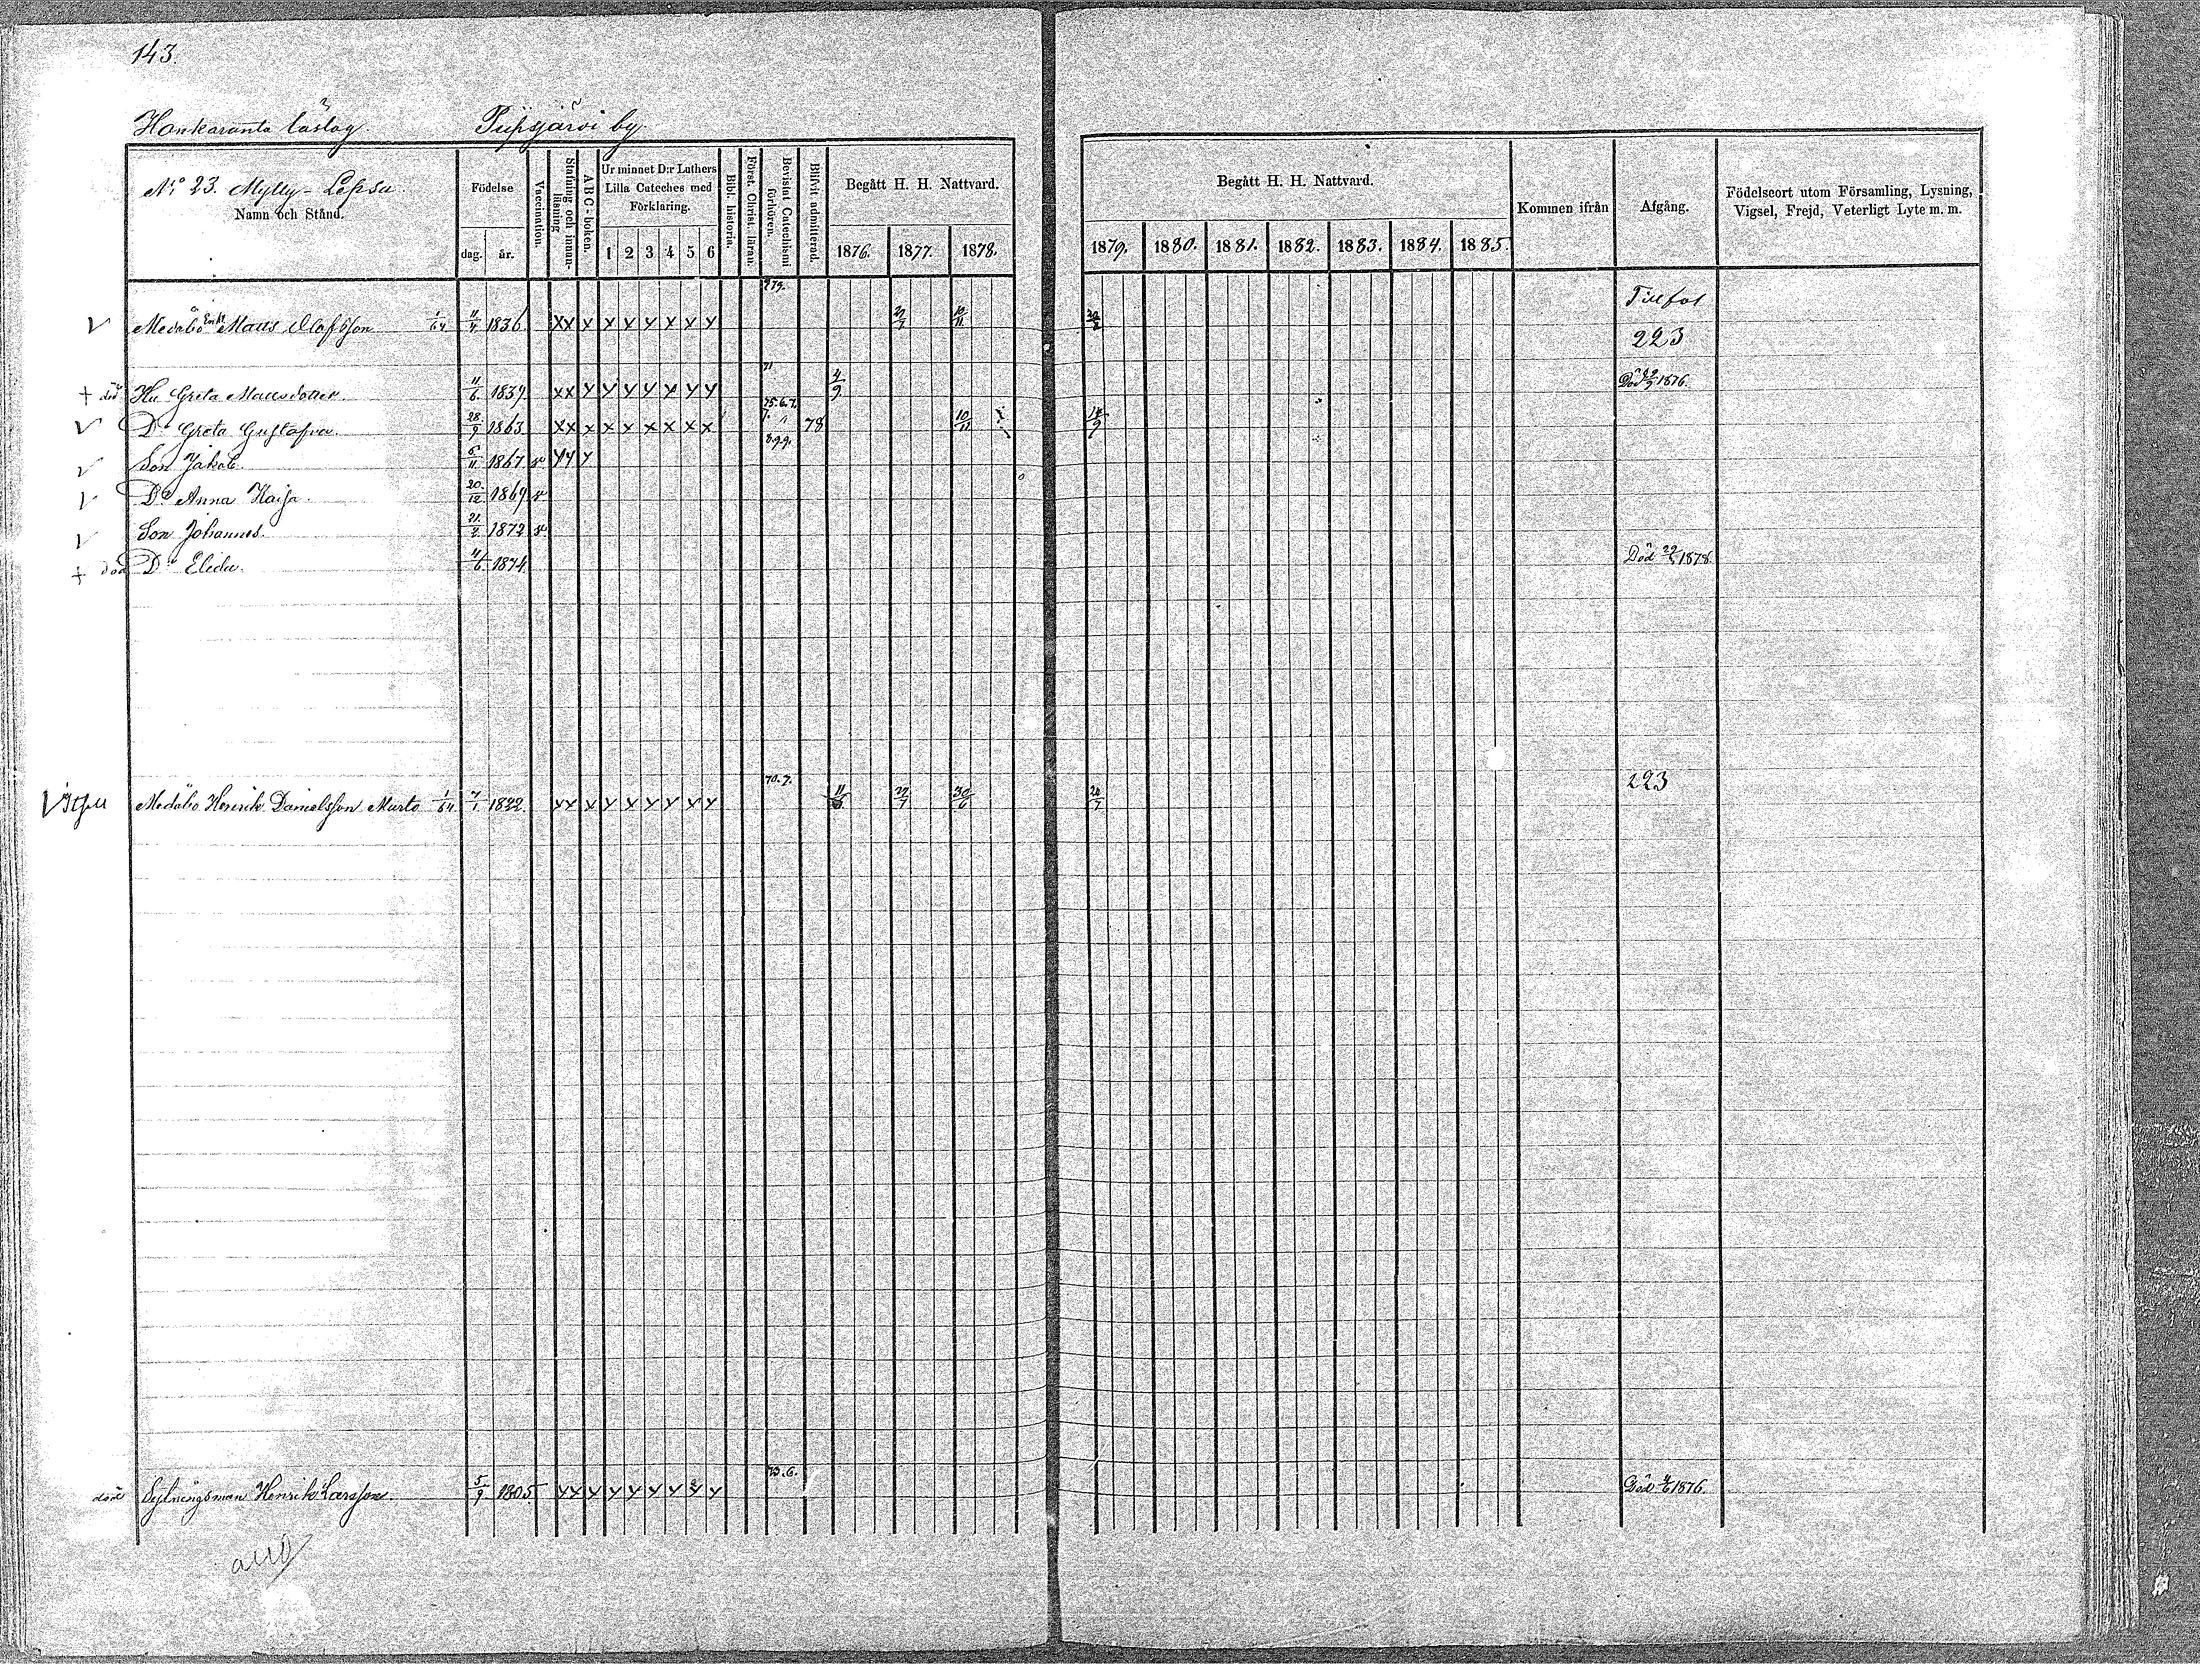 143.
Honkaranta läslag. Pirpsjärvi by.
N:o 23. Mylly-Lepsu.
Namn och Stånd.
Födelse
dag. år.
Vaccination.
Stafning och innanläsning
A B C-boken.
Ur minnet D:r Luthers
Lilla Cateches med
Förklaring.
1 2 3 4 5 6
Bibl. historia.
Först. Christ. läran.
Bevistat Catechismi förhören.
Blifvit admitterad.
Begått H. H. Nattvard.
1876. 1877. 1878.
Begått H. H. Nattvard.
1879. 1880. 1881. 1882. 1883. 1884. 1885.
Kommen ifrån
Afgång.
Födelseort utom Församling, Lysning,
Vigsel, Frejd, Veterligt Lyte m. m.
Till fol
Medåbo Enkl Matts Olofsson 1/64 11/4 1836 x x x x x x x x x 22/7 10/11 223
71
+ död Hu Greta Mattsdotter 11/6 1839 x x x x x x x x x 4/9 Död 1876.
75.6.7.
D:r Greta Gustafva 28/9 1863 x x x x x x x x x 78 10/11 14/9
8.9.9.
Son Jakob 5/11 1867 v x x x
D:r Anna Kaisa 20/12 1869 v
Son Johannes 21/2 1872 v
+ död D:r Elida 11/6 1874 Död 1878.
70.7.
Medåbo Henrik Danielsson Murto 1/64 7/1 1822 x x x x x x x x x 22/7 30/6 223
73.6.
död Sytningsman Henrik Larsson 5/9 1805 x x x x x x x x x Död 1876.